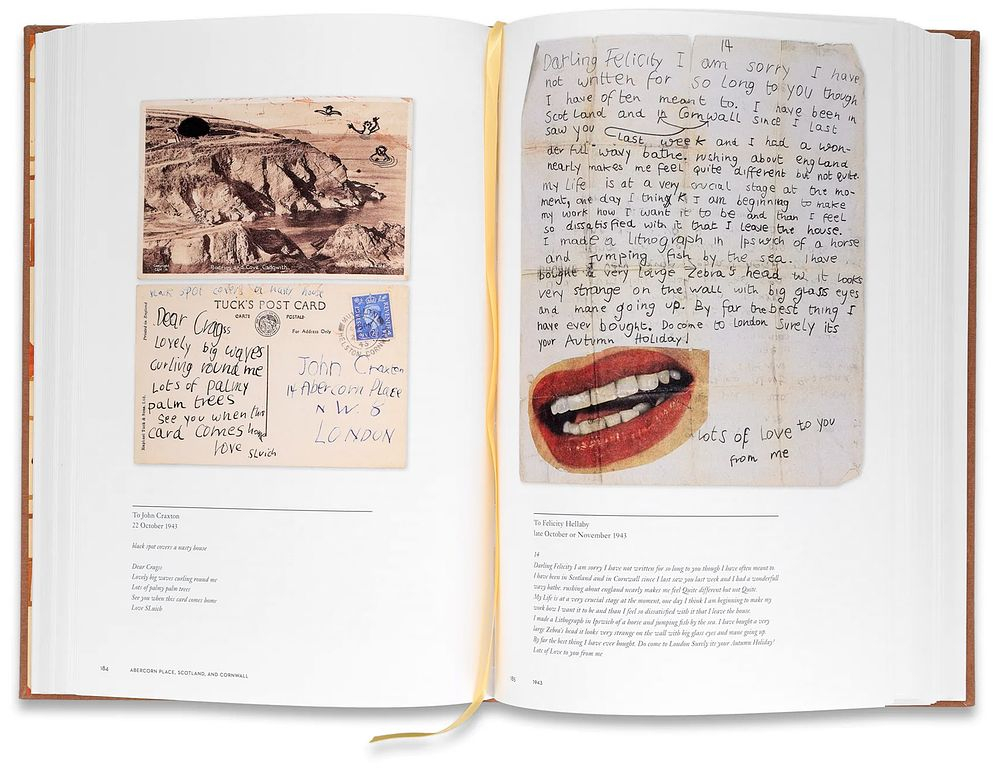 Bodrigy and Cove, Cadgwith.
black spot covers a nasty house
TUCK'S POST CARD
CARTE POSTALE
For Address Only
Printed in England
Raphael Tuck & Sons, Ltd.
Dear Cragss
Lovely big waves
curling round me
Lots of palmy
palm trees
see you when this
card comes home
love Sluich
John Craxton
14 Abercorn Place
N W. 8
LONDON
To John Craxton
22 October 1943
black spot covers a nasty house
Dear Cragss
Lovely big waves curling round me
Lots of palmy palm trees
See you when this card comes home
Love SLuich
184 ABERCORN PLACE, SCOTLAND, AND CORNWALL
14
Darling Felicity I am sorry I have
not written for so long to you though
I have often meant to. I have been in
Scotland and in Cornwall since I last
saw you last week and I had a won-
derfull wavy bathe. rushing about england
nearly makes me feel quite different but not quite.
my Life is at a very crucial stage at the mo-
ment, one day I think I am beginning to make
my work how I want it to be and than I feel
so dissatisfied with it that I leave the house.
I made a lithograph in Ipswich of a horse
and jumping fish by the sea. I have
bought a very large Zebra's head it looks
very strange on the wall with big glass eyes
and mane going up. By far the best thing I
have ever bought. Do come to London Surely its
your Autumn Holiday!
Lots of Love to you
from me
To Felicity Hellaby
late October or November 1943
14
Darling Felicity I am sorry I have not written for so long to you though I have often meant to.
I have been in Scotland and in Cornwall since I last saw you last week and I had a wonderfull
wavy bathe. rushing about england nearly makes me feel Quite different but not Quite.
My Life is at a very crucial stage at the moment, one day I think I am beginning to make my
work how I want it to be and than I feel so dissatisfied with it that I leave the house.
I made a Lithograph in Ipswich of a horse and jumping fish by the sea. I have bought a very
large Zebra's head it looks very strange on the wall with big glass eyes and mane going up.
By far the best thing I have ever bought. Do come to London Surely its your Autumn Holiday!
Lots of Love to you from me
185 1943